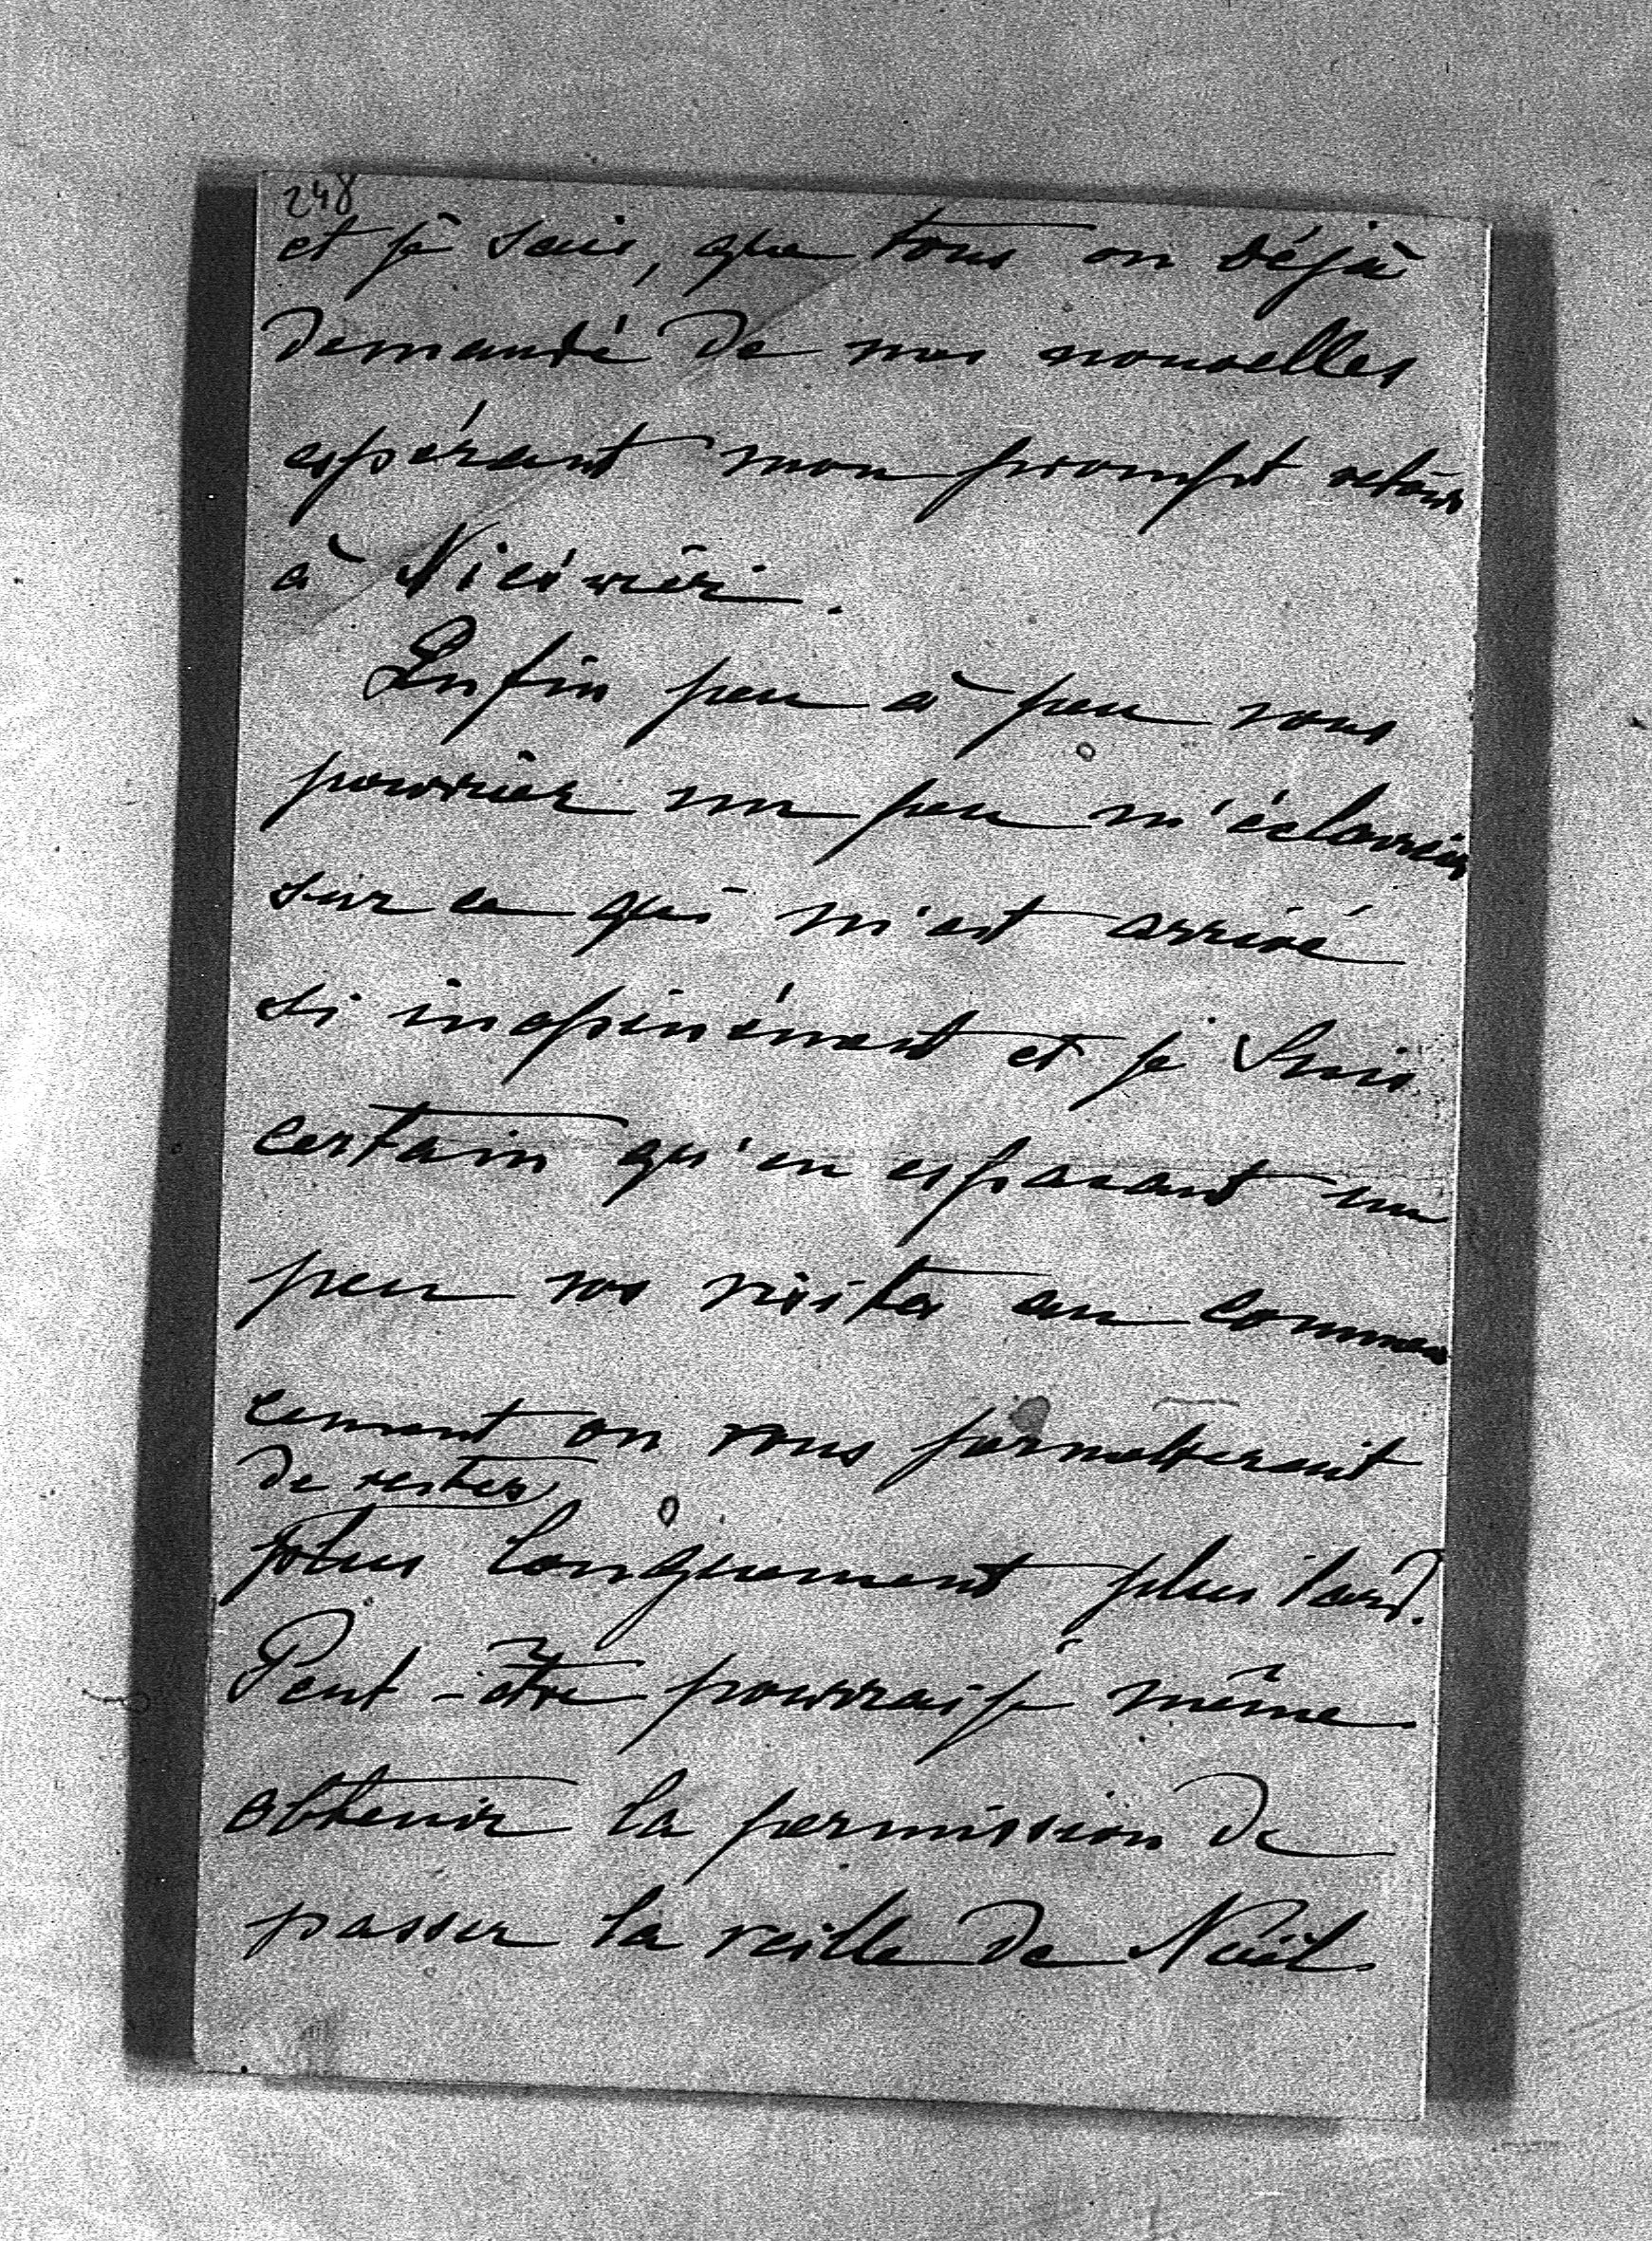 248
et je sais, que tous on déjà
demandé de mes nouvelles
espérant mon prompt retour
à
Enfin peu à peu vous
pourriez un peu m'éclaircir
sur ce qui m'est arrivé
si inopinément et je suis
certain qu'en espacant un
peu vos visites au commen
cement on vous permetterait
de rester
plus longuement plus tard.
Peut-être pourrais je même
obtenir la permission de
passer la veille de Noël